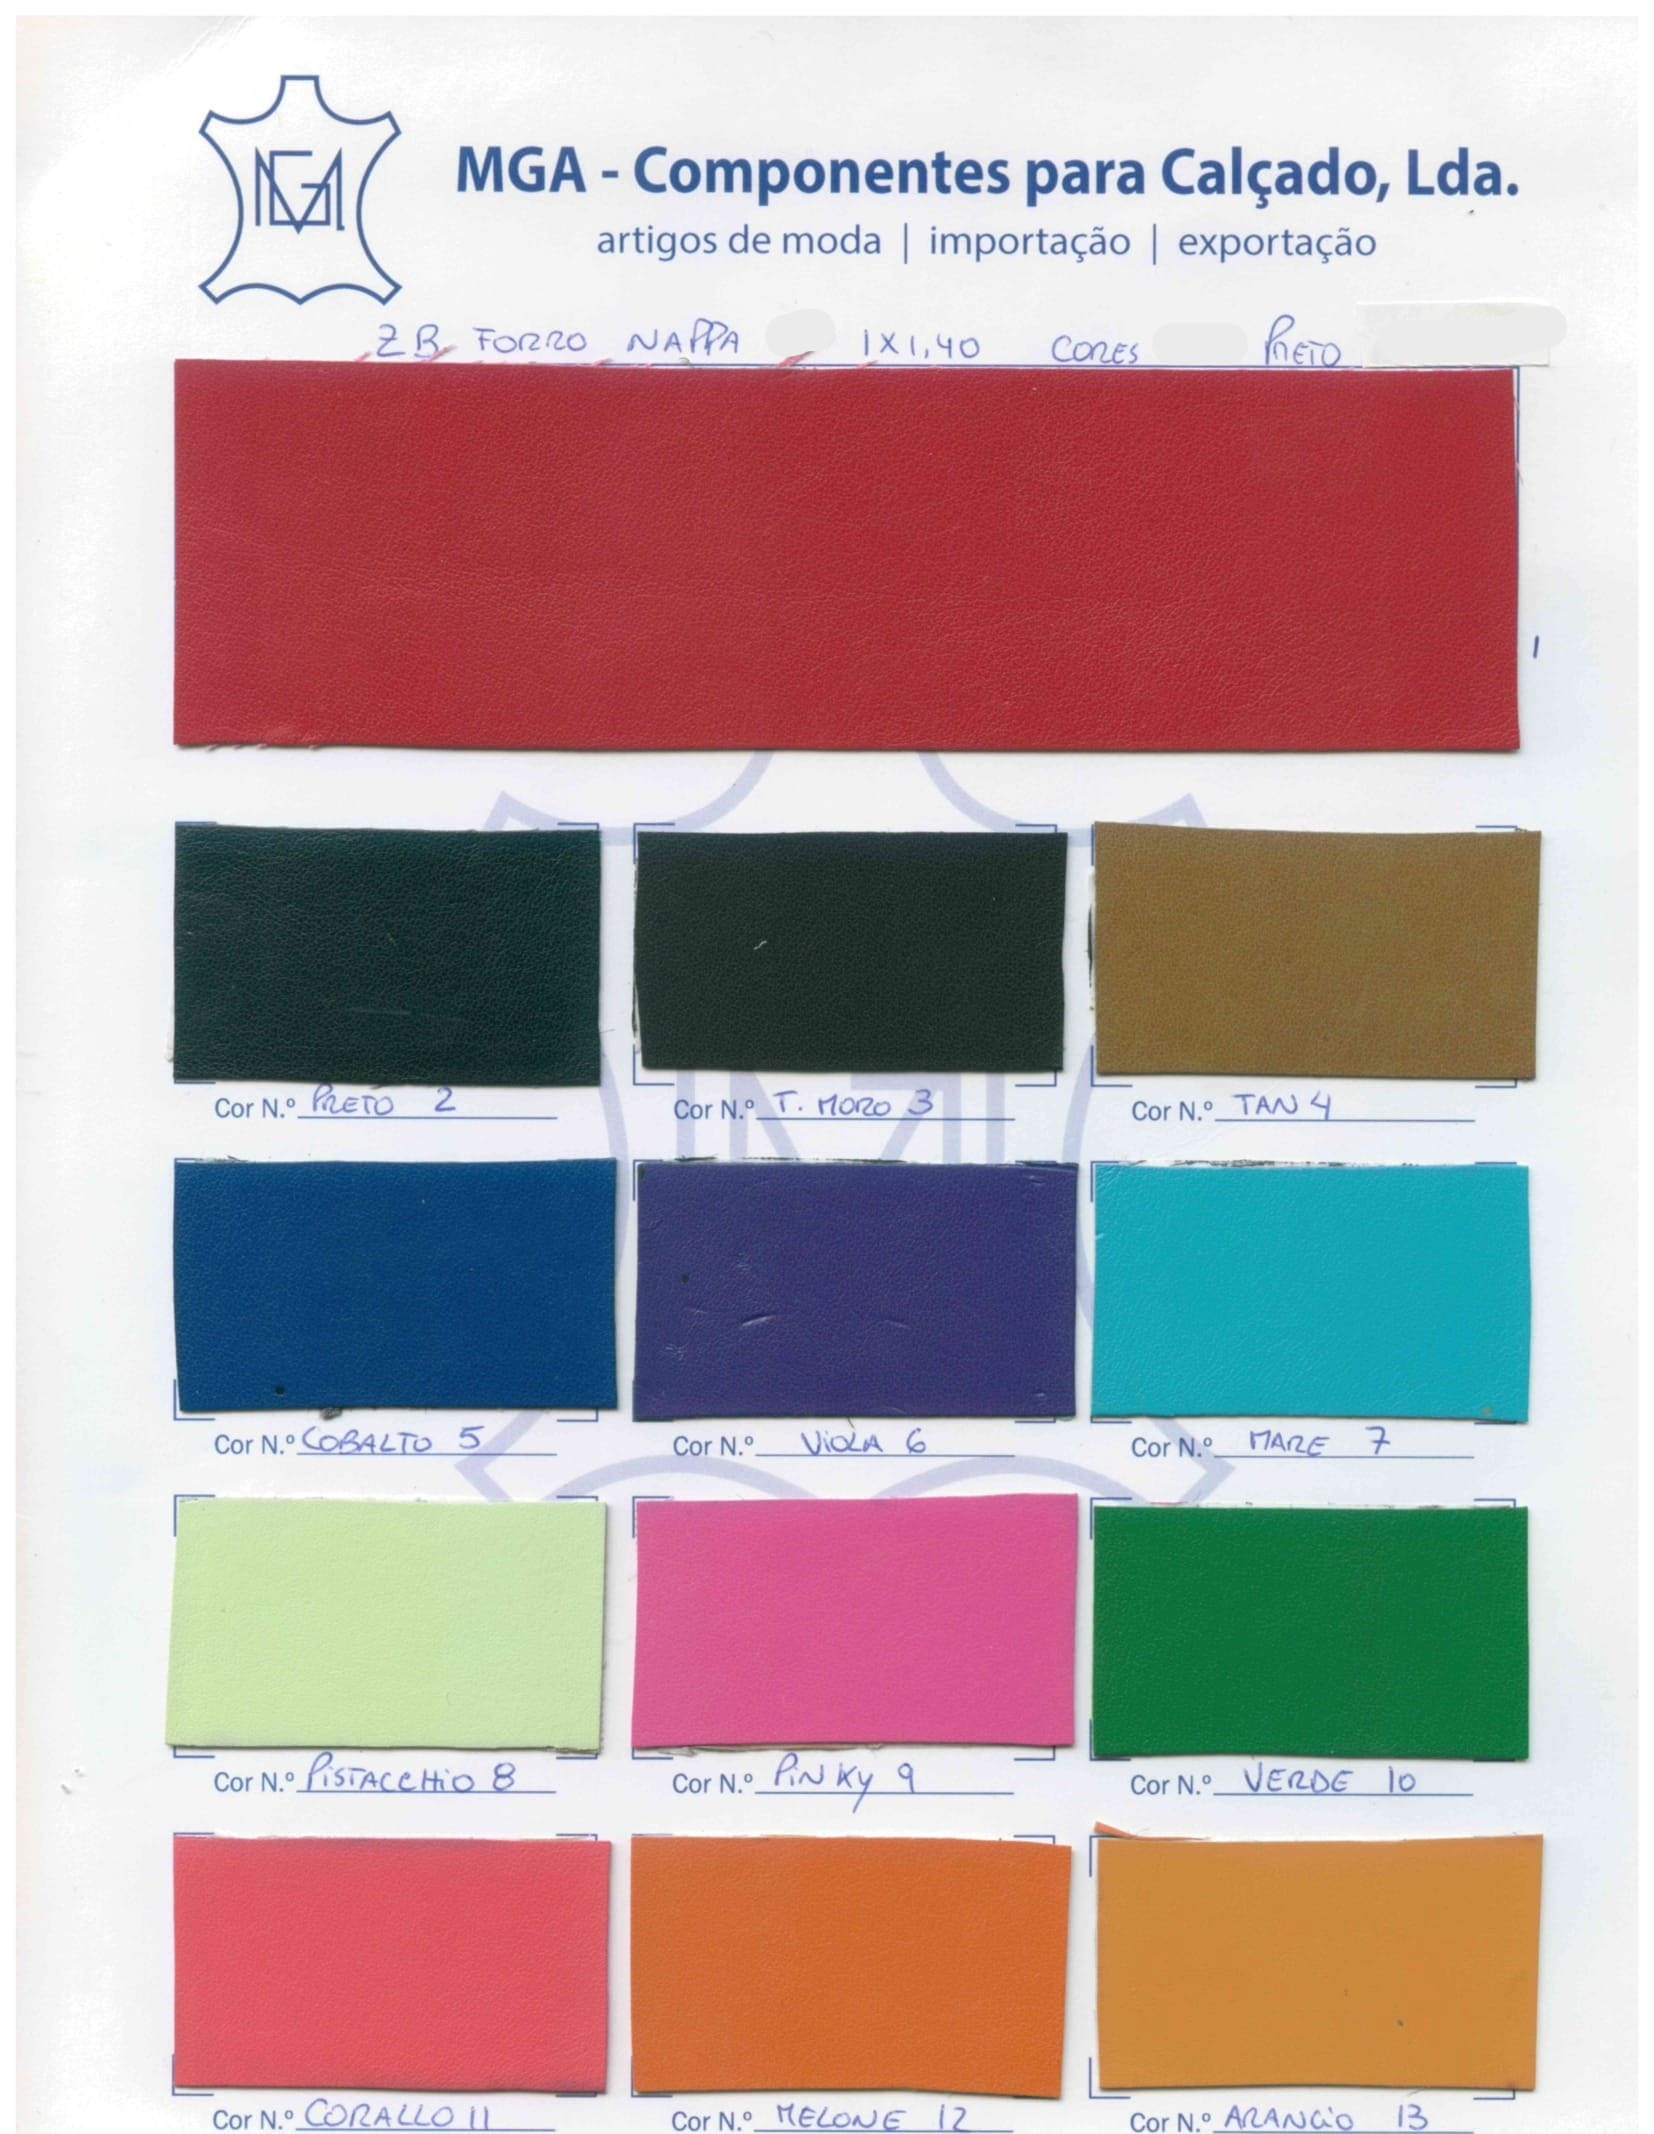 MGA - Componentes para Calçado, Lda.
artigos de moda | importação | exportação
ZB FORRO NAPPA 1X1,40 CORES PRETO
1
Cor N.º PRETO 2 Cor N.º T. MORO 3 Cor N.º TAN 4
Cor N.º COBALTO 5 Cor N.º ViOLA 6 Cor N.º MARE 7
Cor N.º PiSTACCHiO 8 Cor N.º PiNKy 9 Cor N.º VERDE 10
Cor N.º CORALLO 11 Cor N.º MELONE 12 Cor N.º ARANCiO 13